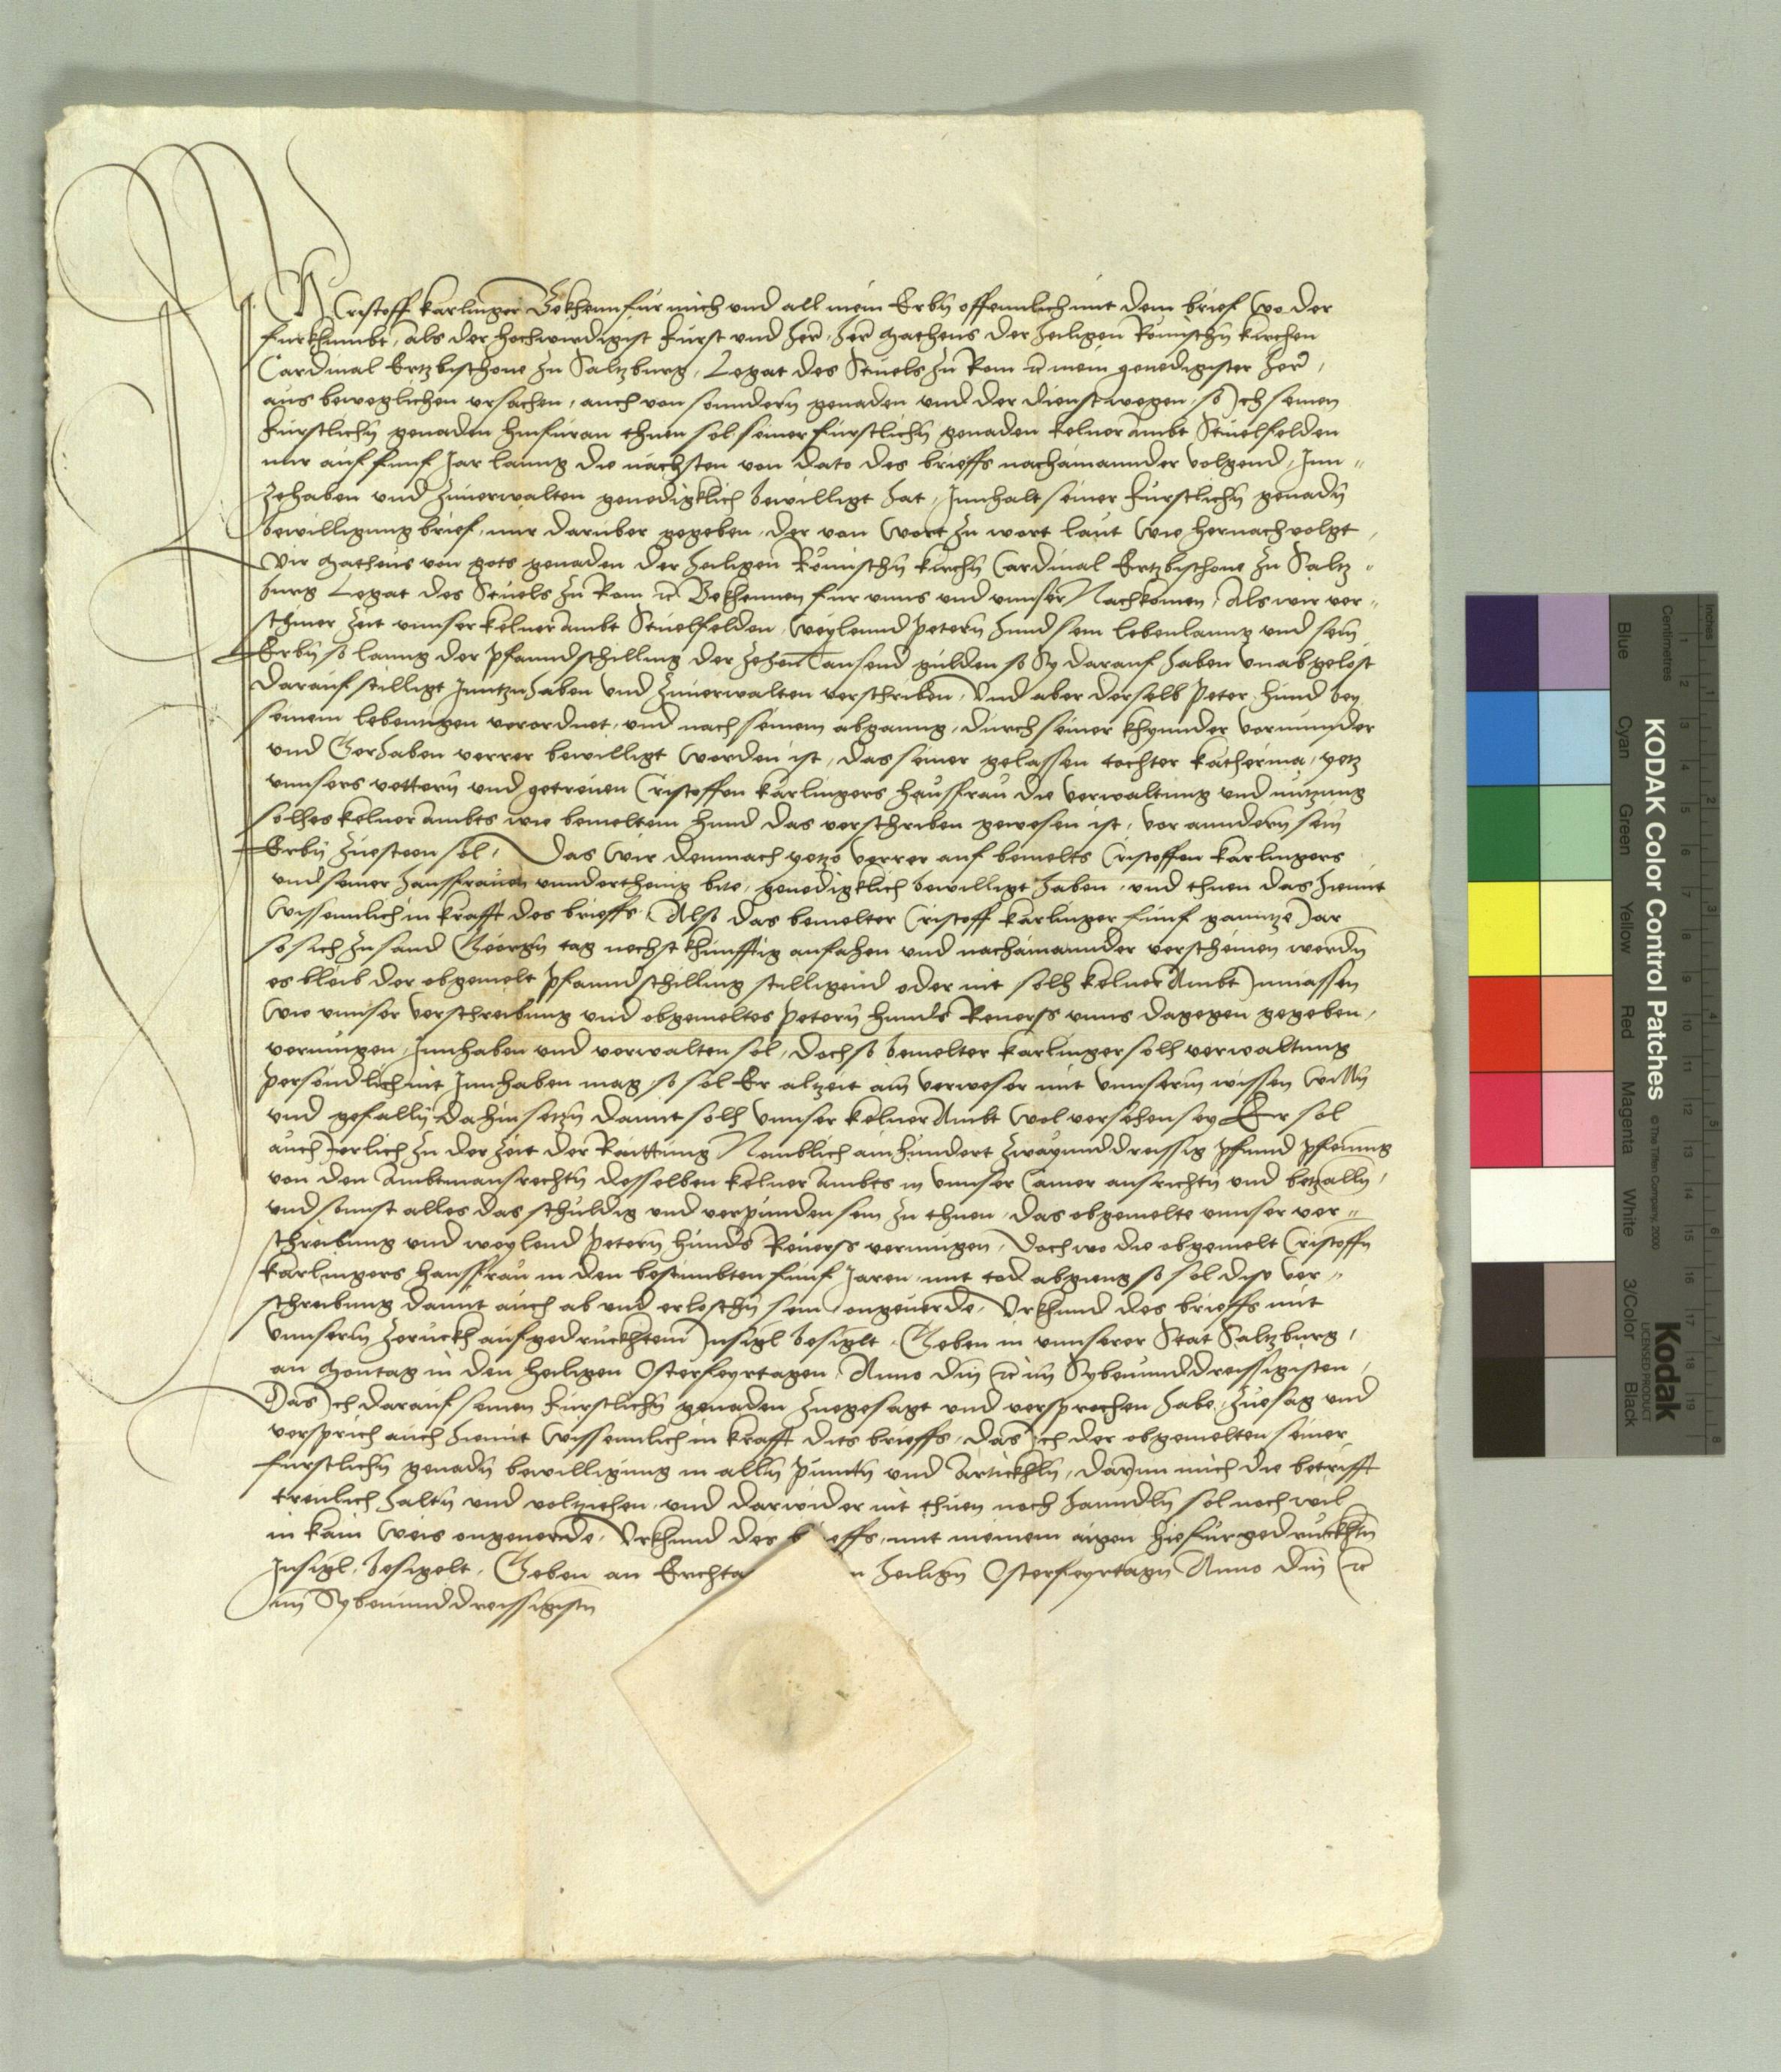 Ich Cristoff karlinger Bekhenn fur mich und all mein Erbn offennlich mit dem brief wo der
furkhumbt, als der hochwirdigist Furst und herr, herr Matheus der heiligen Römischn kirchen
Cardinal Ertzbischove zu Saltzburg, Legat des Stuels zu Rom ꝛc mein genedigister herr,
aus beweglichen ursachen, auch von sonndern genaden und der dienst wegen, so Ich seinen
Fürstlichn genaden hinfüran thuen sol seiner fürstlichn genaden kelner Ambt Stuelfelden
mir auf funf Jar lanng die nächsten von dato des brieffs nacheinannder volgend, Inn„
zehaben und zuverwalten genedigklich bewilligt hat, Innhalt seiner Fürstlichn genadn
bewilligung brief, mir daruber gegeben, der von wort zu wort laut wie hernach volgt,
Wir Matheus von gots genaden der heiligen Römischn kirchn Cardinal Ertzbischove zu Saltz„
burg Legat des Stuels zu Rom ꝛc Bekhennen fur unns und unnser Nachkomen, Als wir ver„
schiner zeit unnser kelner ambt Stuelfelden, weylennd Petern hund sein lebenlanng und sein
Erbn so lanng der pfanndschilling der zehen Tausend gulden so Sy darauf haben unabgelöst
darauf stilligt Inntzuhaben und zuverwalten verschriben, Und aber derselb Peter hund bey
seinem lebentigen verordnet, und nach seinem abganng, durch seiner khynnder vormunder
und Gerhaben verrer bewilligt worden ist, das seiner gelassen tochter katherina, yetz
unnsers vettern und getreuen Cristoffen karlingers hausfrau die verwaltung und nutzung
solhes kelner ambts wie bemeltem hund das verschriben gewesen ist, vor anndern sein
Erbn zuesteen sol, Das wir demnach yetzo verrer auf bemelts Cristoffen karlingers
und seiner hausfrauen unndertheinig bete, genedigklich bewilligt haben, und thuen das hiemit
wissenntlich in krafft des brieffs, Also das bemelter Cristoff karlinger funf ganntze Jar
so sich zu sand Georgn tag nechst khunfftig anfahen und nacheinannder verscheinen werdn
es bleib der obgemelt pfanndschilling stilligend oder nit solh kelner Ambt Inmassen
wie unnser verschreibung und obgemeltes Petern hunds Reverss unns dagegen gegeben,
vermugen, Innhaben und verwalten sol, doch so bemelter karlinger solh verwaltung
persondlich nit Innhaben mag, so sol Er altzeit ain verweser mit unnserm wissen willn
und gefalln dahin setzn damit solh unnser kelner Ambt wol versehen sey Er sol
auch Jerlich zu der zeit der Raittung Nemblich ainhundert zwayunddreissig pfund pfenning
von den Ambtmansrechtn desselben kelner ambts in unnser Camer ausrichtn und betzalln,
und sonnst alles das schuldig und verpunden sein zu thuen, das obgemelte unnser ver„
schreibung und weylend Petern hunds Reverss vermugen, Doch wo die obgemelt Cristoffn
karlingers hausfrau in den bestimbten funf Jaren, mit tod abgieng so sol dise ver„
schreibung damit auch ab und erloschn sein ongeverde, Urkhund des brieffs mit
unnserm zeruckh aufgedruckhtem Insigl besiglt, Geben in unnserer Stat Saltzburg,
an Montag in den heiligen Osterfeyrtagen Anno dm̄ ꝛc im Sybenunddreissigisten,
Das Ich darauf seinen Fürstlichn genaden zuegesagt und versprochen habe, Zuesag und
versprich auch hiemit wissenntlich in krafft dits brieffs, das Ich der obgemelten seiner
fürstlichn genadn bewilligung in alln puncten und Artickhln, darinn mich die betrifft
treulich haltn und voltziehen, und darwider nit thuen noch hanndln sol noch wil
in kain weis ongeverde, Urkhund des b effs, mit meinem aigen hiefürgedruckhtn
Insigl, besigelt, Geben an Erchta n heilign Osterfeyrtagn Anno dm̄ ꝛc
im Sybenunddreissigistn
KODAK Color Control Patches
© The Tiffen Company, 2000
Kodak
LICENSED PRODUCT
Blue Cyan Green Yellow Red Magenta White 3/Color Black
Centimetres
Inches
1 2 3 4 5 6 7 8 9 10 11 12 13 14 15 16 17 18 19
1 2 3 4 5 6 7 8